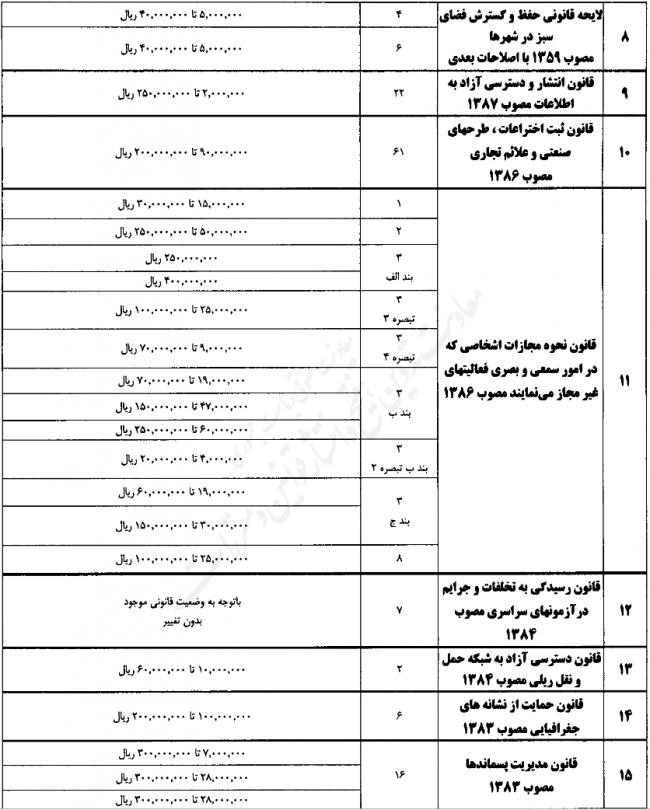 ۸
لایحه قانونی حفظ و گسترش فضای
سبز در شهرها
مصوب ۱۳۵۹ با اصلاحات بعدی
۴
۵,۰۰۰,۰۰۰ تا ۴۰,۰۰۰,۰۰۰ ریال
۶
۵,۰۰۰,۰۰۰ تا ۴۰,۰۰۰,۰۰۰ ریال
۹
قانون انتشار و دسترسی آزاد به
اطلاعات مصوب ۱۳۸۷
۲۲
۲,۰۰۰,۰۰۰ تا ۲۵۰,۰۰۰,۰۰۰ ریال
۱۰
قانون ثبت اختراعات ، طرحهای
صنعتی و علائم تجاری
مصوب ۱۳۸۶
۶۱
۹۰,۰۰۰,۰۰۰ تا ۲۰۰,۰۰۰,۰۰۰ ریال
۱۱
قانون نحوه مجازات اشخاصی که
در امور سمعی و بصری فعالیتهای
غیر مجاز می‌نمایند مصوب ۱۳۸۶
۱
۱۵,۰۰۰,۰۰۰ تا ۳۰,۰۰۰,۰۰۰ ریال
۲
۵۰,۰۰۰,۰۰۰ تا ۲۵۰,۰۰۰,۰۰۰ ریال
۳
بند الف
۲۵۰,۰۰۰,۰۰۰ ریال
۴۰۰,۰۰۰,۰۰۰ ریال
۳
تبصره ۳
۲۵,۰۰۰,۰۰۰ تا ۱۰۰,۰۰۰,۰۰۰ ریال
۳
تبصره ۴
۹,۰۰۰,۰۰۰ تا ۷۰,۰۰۰,۰۰۰ ریال
۳
بند ب
۱۹,۰۰۰,۰۰۰ تا ۷۰,۰۰۰,۰۰۰ ریال
۴۷,۰۰۰,۰۰۰ تا ۱۵۰,۰۰۰,۰۰۰ ریال
۶۰,۰۰۰,۰۰۰ تا ۲۵۰,۰۰۰,۰۰۰ ریال
۳
بند ب تبصره ۲
۴,۰۰۰,۰۰۰ تا ۲۰,۰۰۰,۰۰۰ ریال
۳
بند ج
۱۹,۰۰۰,۰۰۰ تا ۶۰,۰۰۰,۰۰۰ ریال
۳۰,۰۰۰,۰۰۰ تا ۱۵۰,۰۰۰,۰۰۰ ریال
۸
۲۵,۰۰۰,۰۰۰ تا ۱۰۰,۰۰۰,۰۰۰ ریال
۱۲
قانون رسیدگی به تخلفات و جرایم
درآزمونهای سراسری مصوب
۱۳۸۴
۷
باتوجه به وضعیت قانونی موجود
بدون تغییر
۱۳
قانون دسترسی آزاد به شبکه حمل
و نقل ریلی مصوب ۱۳۸۴
۲
۱۰,۰۰۰,۰۰۰ تا ۶۰,۰۰۰,۰۰۰ ریال
۱۴
قانون حمایت از نشانه های
جغرافیایی مصوب ۱۳۸۳
۶
۱۰۰,۰۰۰,۰۰۰ تا ۲۰۰,۰۰۰,۰۰۰ ریال
۱۵
قانون مدیریت پسماندها
مصوب ۱۳۸۳
۱۶
۷,۰۰۰,۰۰۰ تا ۳۰۰,۰۰۰,۰۰۰ ریال
۲۸,۰۰۰,۰۰۰ تا ۳۰۰,۰۰۰,۰۰۰ ریال
۲۸,۰۰۰,۰۰۰ تا ۳۰۰,۰۰۰,۰۰۰ ریال